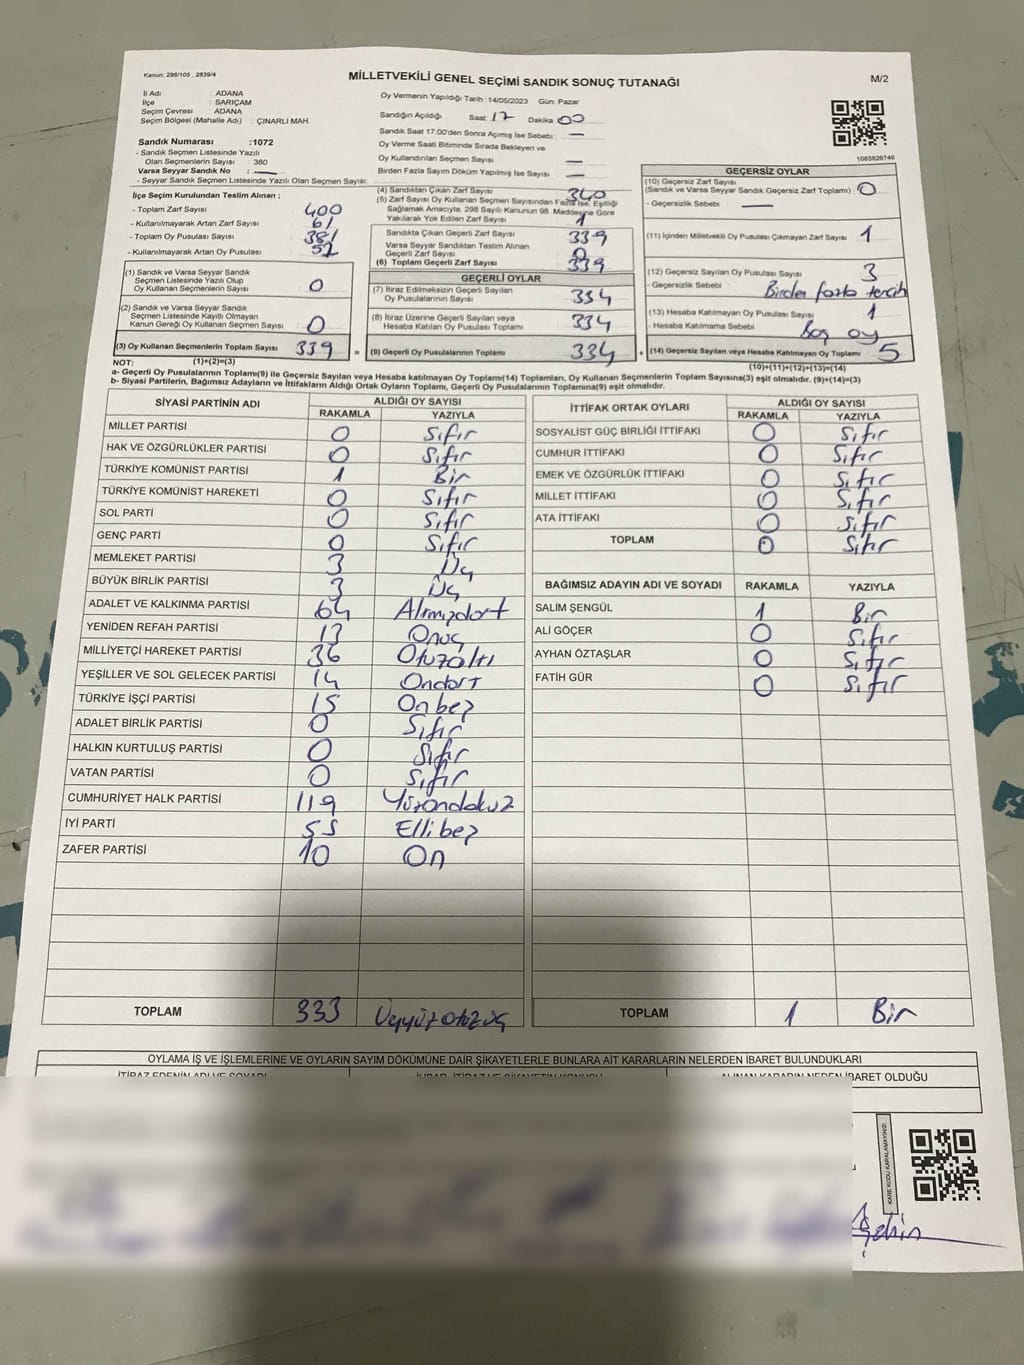 Kanun: 298/105 , 2839/4
MİLLETVEKİLİ GENEL SEÇİMİ SANDIK SONUÇ TUTANAĞI
M/2
İl Adı : ADANA
İlçe : SARIÇAM
Seçim Çevresi : ADANA
Seçim Bölgesi (Mahalle Adı) : ÇINARLI MAH.
Sandık Numarası :1072
- Sandık Seçmen Listesinde Yazılı
Olan Seçmenlerin Sayısı : 380
Varsa Seyyar Sandık No : —
- Seyyar Sandık Seçmen Listesinde Yazılı Olan Seçmen Sayısı:
İlçe Seçim Kurulundan Teslim Alınan :
- Toplam Zarf Sayısı 400
- Kullanılmayarak Artan Zarf Sayısı 61
- Toplam Oy Pusulası Sayısı 381
- Kullanılmayarak Artan Oy Pusulası
(1) Sandık ve Varsa Seyyar Sandık
Seçmen Listesinde Yazılı Olup
Oy Kullanan Seçmenlerin Sayısı 0
(2) Sandık ve Varsa Seyyar Sandık
Seçmen Listesinde Kayıtlı Olmayan
Kanun Gereği Oy Kullanan Seçmen Sayısı 0
(3) Oy Kullanan Seçmenlerin Toplam Sayısı 339
(1)+(2)=(3)
Oy Vermenin Yapıldığı Tarih :14/05/2023 Gün: Pazar
Sandığın Açıldığı Saat 17 Dakika 00
Sandık Saat 17:00'den Sonra Açımış İse Sebebi : —
Oy Verme Saati Bitiminde Sırada Bekleyen ve
Oy Kullandırılan Seçmen Sayısı —
Birden Fazla Sayım Döküm Yapılmış İse Sayısı —
(4) Sandıktan Çıkan Zarf Sayısı 340
(5) Zarf Sayısı Oy Kullanan Seçmen Sayısından Fazla İse, Eşitliği
Sağlamak Amacıyla, 298 Sayılı Kanunun 98. Maddesine Göre
Yakılarak Yok Edilen Zarf Sayısı 1
Sandıkta Çıkan Geçerli Zarf Sayısı 339
Varsa Seyyar Sandıktan Teslim Alınan
Geçerli Zarf Sayısı 0
(6) Toplam Geçerli Zarf Sayısı 339
GEÇERLİ OYLAR
(7) İtiraz Edilmeksizin Geçerli Sayılan
Oy Pusulalarının Sayısı 334
(8) İtiraz Üzerine Geçerli Sayılan veya
Hesaba Katılan Oy Pusulası Toplamı 334
= (9) Geçerli Oy Pusulalarının Toplamı 334
1083826746
GEÇERSİZ OYLAR
(10) Geçersiz Zarf Sayısı
(Sandık ve Varsa Seyyar Sandık Geçersiz Zarf Toplamı) 0
- Geçersizlik Sebebi : —
(11) İçinden Milletvekili Oy Pusulası Çıkmayan Zarf Sayısı : 1
(12) Geçersiz Sayılan Oy Pusulası Sayısı : 3
- Geçersizlik Sebebi : Birden fazla tercih
(13) Hesaba Katılmayan Oy Pusulası Sayısı : 1
- Hesaba Katılmama Sebebi : Boş oy
+ (14) Geçersiz Sayılan veya Hesaba Katılmayan Oy Toplamı : 5
(10)+(11)+(12)+(13)=(14)
NOT:
a- Geçerli Oy Pusulalarının Toplamı(9) ile Geçersiz Sayılan veya Hesaba katılmayan Oy Toplamı(14) Toplamları, Oy Kullanan Seçmenlerin Toplam Sayısına(3) eşit olmalıdır. (9)+(14)=(3)
b- Siyasi Partilerin, Bağımsız Adayların ve İttifakların Aldığı Ortak Oyların Toplamı, Geçerli Oy Pusulalarının Toplamına(9) eşit olmalıdır.
SİYASİ PARTİNİN ADI ALDIĞI OY SAYISI
RAKAMLA YAZIYLA
MİLLET PARTİSİ 0 Sıfır
HAK VE ÖZGÜRLÜKLER PARTİSİ 0 Sıfır
TÜRKİYE KOMÜNİST PARTİSİ 1 Bir
TÜRKİYE KOMÜNİST HAREKETİ 0 Sıfır
SOL PARTİ 0 Sıfır
GENÇ PARTİ 0 Sıfır
MEMLEKET PARTİSİ 3 Üç
BÜYÜK BİRLİK PARTİSİ 3 Üç
ADALET VE KALKINMA PARTİSİ 64 Altmışdört
YENİDEN REFAH PARTİSİ 13 Onüç
MİLLİYETÇİ HAREKET PARTİSİ 36 Otuzaltı
YEŞİLLER VE SOL GELECEK PARTİSİ 14 Ondört
TÜRKİYE İŞÇİ PARTİSİ 15 Onbeş
ADALET BİRLİK PARTİSİ 0 Sıfır
HALKIN KURTULUŞ PARTİSİ 0 Sıfır
VATAN PARTİSİ 0 Sıfır
CUMHURİYET HALK PARTİSİ 119 Yüzondokuz
İYİ PARTİ 55 Ellibeş
ZAFER PARTİSİ 10 On
TOPLAM 333 Üçyüzotuzüç
İTTİFAK ORTAK OYLARI ALDIĞI OY SAYISI
RAKAMLA YAZIYLA
SOSYALİST GÜÇ BİRLİĞİ İTTİFAKI 0 Sıfır
CUMHUR İTTİFAKI 0 Sıfır
EMEK VE ÖZGÜRLÜK İTTİFAKI 0 Sıfır
MİLLET İTTİFAKI 0 Sıfır
ATA İTTİFAKI 0 Sıfır
TOPLAM 0 Sıfır
BAĞIMSIZ ADAYIN ADI VE SOYADI RAKAMLA YAZIYLA
SALİM ŞENGÜL 1 Bir
ALİ GÖÇER 0 Sıfır
AYHAN ÖZTAŞLAR 0 Sıfır
FATİH GÜR 0 Sıfır
TOPLAM 1 Bir
OYLAMA İŞ VE İŞLEMLERİNE VE OYLARIN SAYIM DÖKÜMÜNE DAİR ŞİKAYETLERLE BUNLARA AİT KARARLARIN NELERDEN İBARET BULUNDUKLARI
ALINAN KARARIN NEDEN İBARET OLDUĞU
KARE KODU KARALAMAYINIZ!